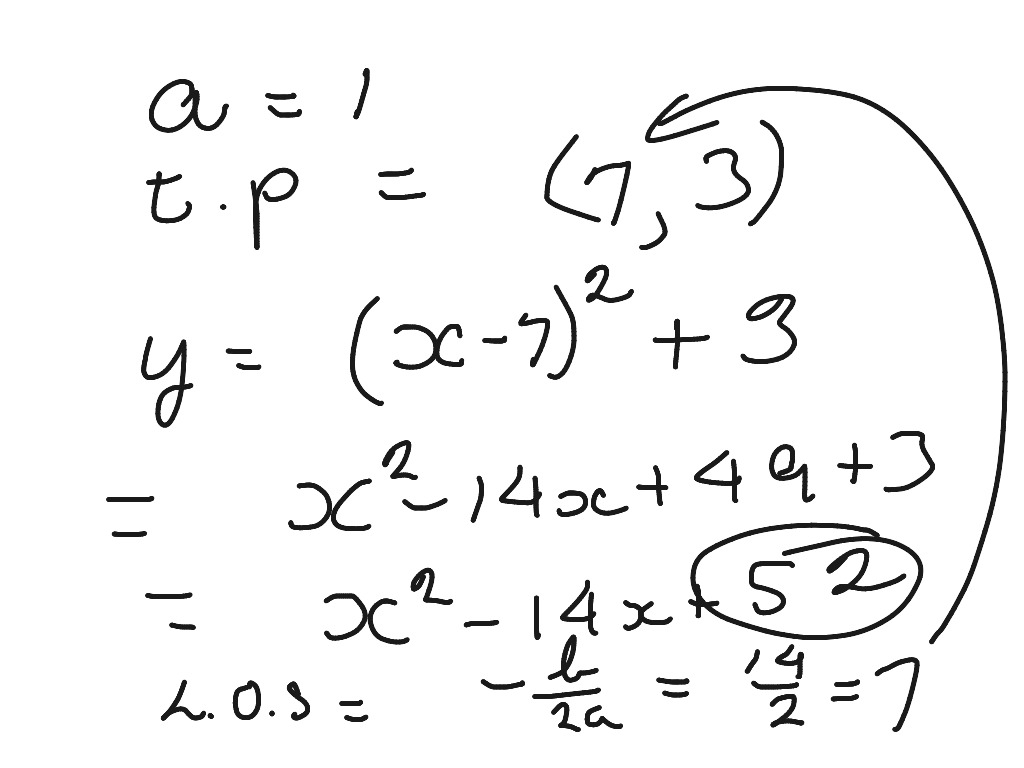 a = 1
t.p = (7, 3)
y = (x-7)² + 3
= x² - 14x + 49 + 3
= x² - 14x + 52
L.O.S = -b/2a = 14/2 = 7